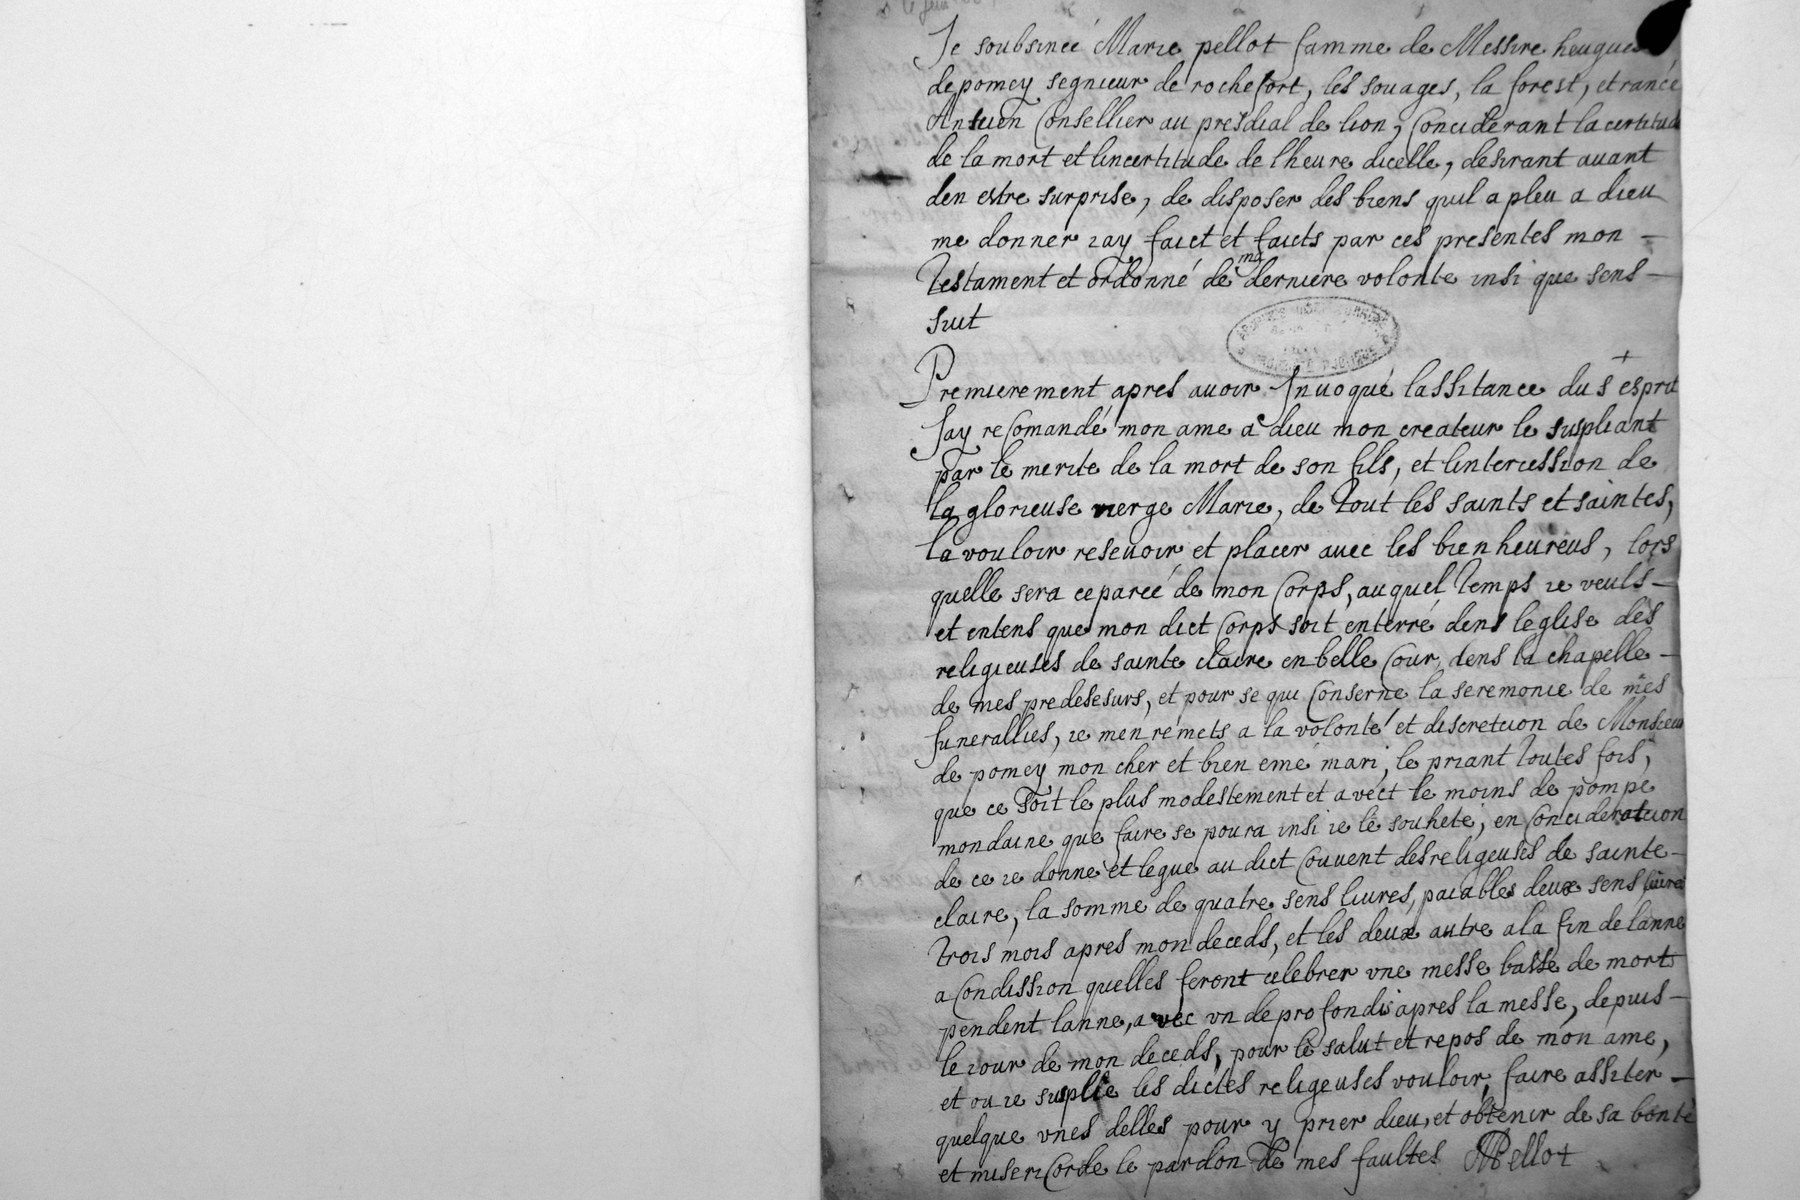 Je soubsineé Marie pellot famme de Messire heugues
de pomey segnieur de rochefort, les souages, la forest, et rancé
Antien Consellier au presdial de lion, Conciderant la certitude
de la mort et lincertitude de lheure dicelle, desirant auant
den estre surprise, de disposer des biens quil a pleu a dieu
me donner iay faict et faicts par ces presentes mon
Testament et ordonné de ma derniere volonte insi que sens
suit
Premierement apres auoir Jnuoqué lassitance du s esprit
Jay recomandé mon ame a dieu mon createur le suspliant
par le merite de la mort de son fils, et lintercission de
la glorieuse vierge Marie, de Tout les saints et saintes,
la vouloir reseuoir et placer auec les bien heureus, lors
quelle sera ceparée de mon Corps, auquel Temps ie veuls
et entens que mon dict Corps soit enterré dens leglise des
religieuses de sainte claire en belle Cour, dens la chapelle
de mes predesesurs, et pour se qui Conserne la seremonie de mes
funerallies, ie men remets a la volonté et discretion de Monsieur
de pomey mon cher et bien emé mari, le priant Toutes fois,
que ce soit le plus modestement et avect le moins de pompe
mondaine que faire se poura insi ie le souhete, en Concideration
de ce ie donne et legue au dict Couuent des religeuses de sainte
claire, la somme de quatre sens liures, paiables deux sens liures
Trois mois apres mon deceds, et les deux autre a la fin de lanne
a Condission quelles feront celebrer vne messe basse de mort
pendent lanne, avec vn de profondis apres la messe, depuis
le iour de mon deceds, pour le salut et repos de mon ame,
et ou ie susplie les dictes religeuses vouloir faire assiter
quelque vnes delles pour y prier dieu, et obtenir de sa bonté
et misericorde le pardon de mes faultes MPellot